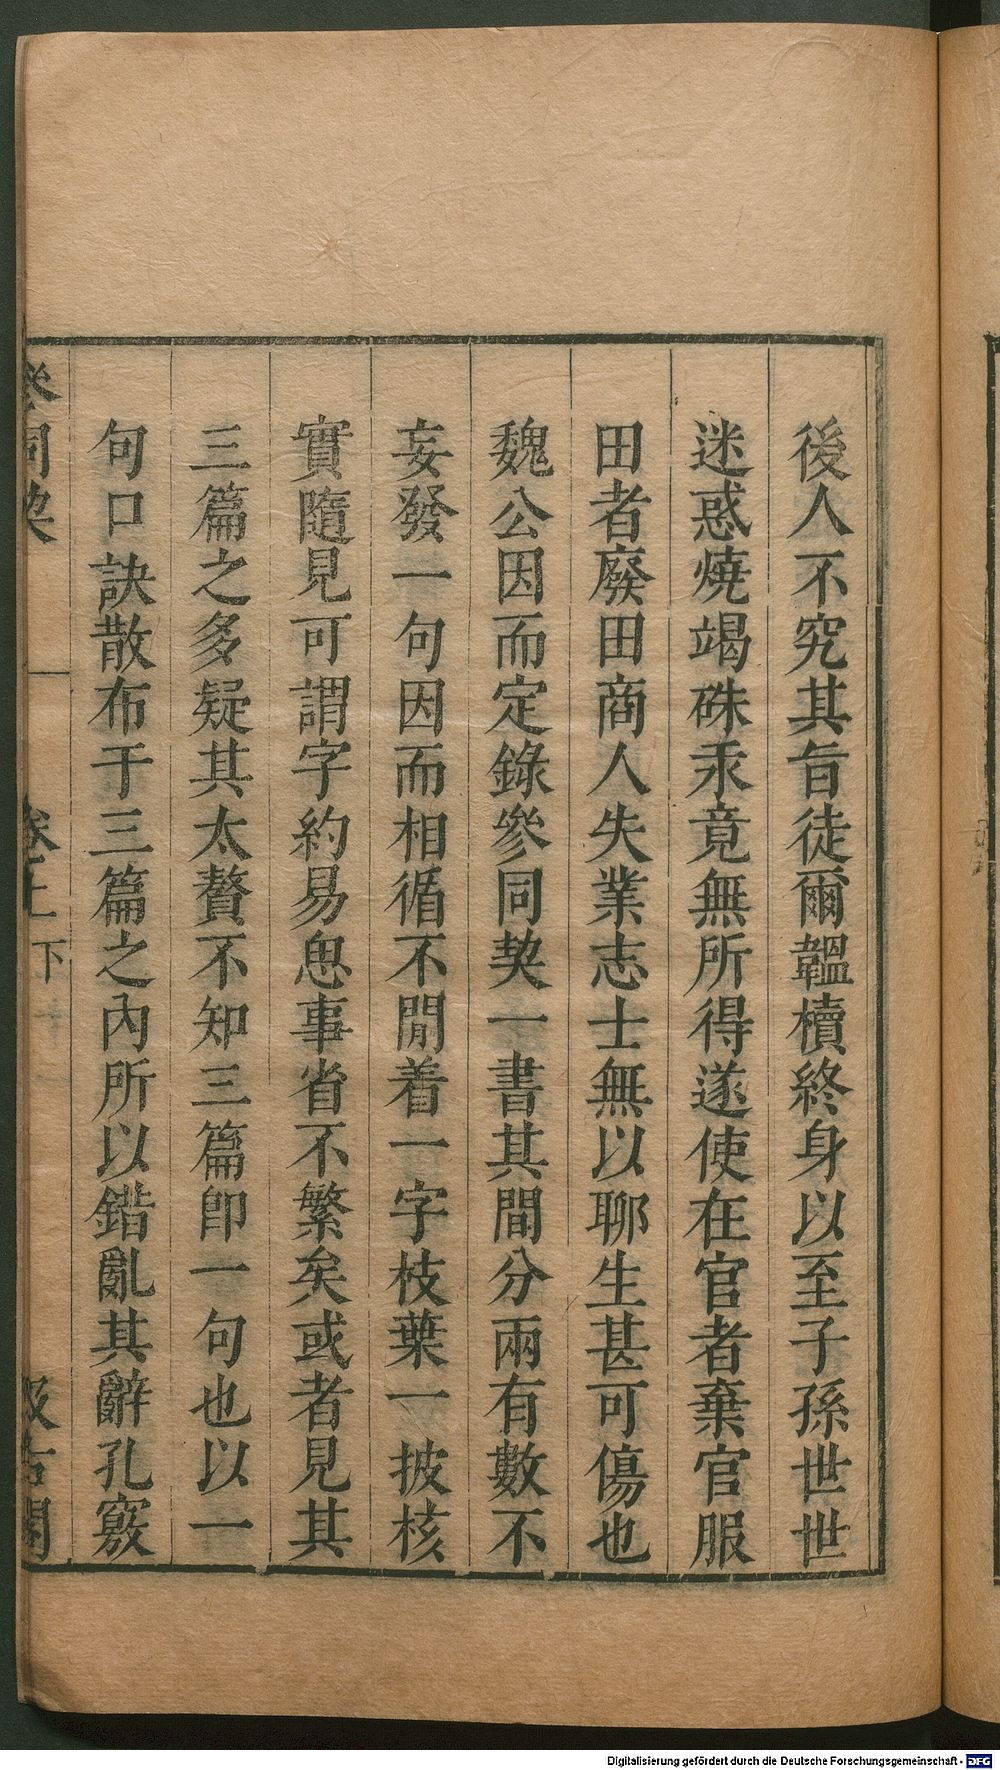 後人不究其旨徒爾韞櫝終身以至子孫世世
迷惑燒竭硃汞竟無所得遂使在官者棄官服
田者廢田商人失業志士無以聊生甚可傷也
魏公因而定錄參同契一書其間分兩有數不
妄發一句因而相循不閒着一字枝葉一披核
實隨見可謂字約易思事省不繁矣或者見其
三篇之多疑其太贅不知三篇即一句也以一
句口訣散布于三篇之內所以鍇亂其辭孔竅
參同契 卷上下 汲古閣
Digitalisierung gefördert durch die Deutsche Forschungsgemeinschaft - DFG